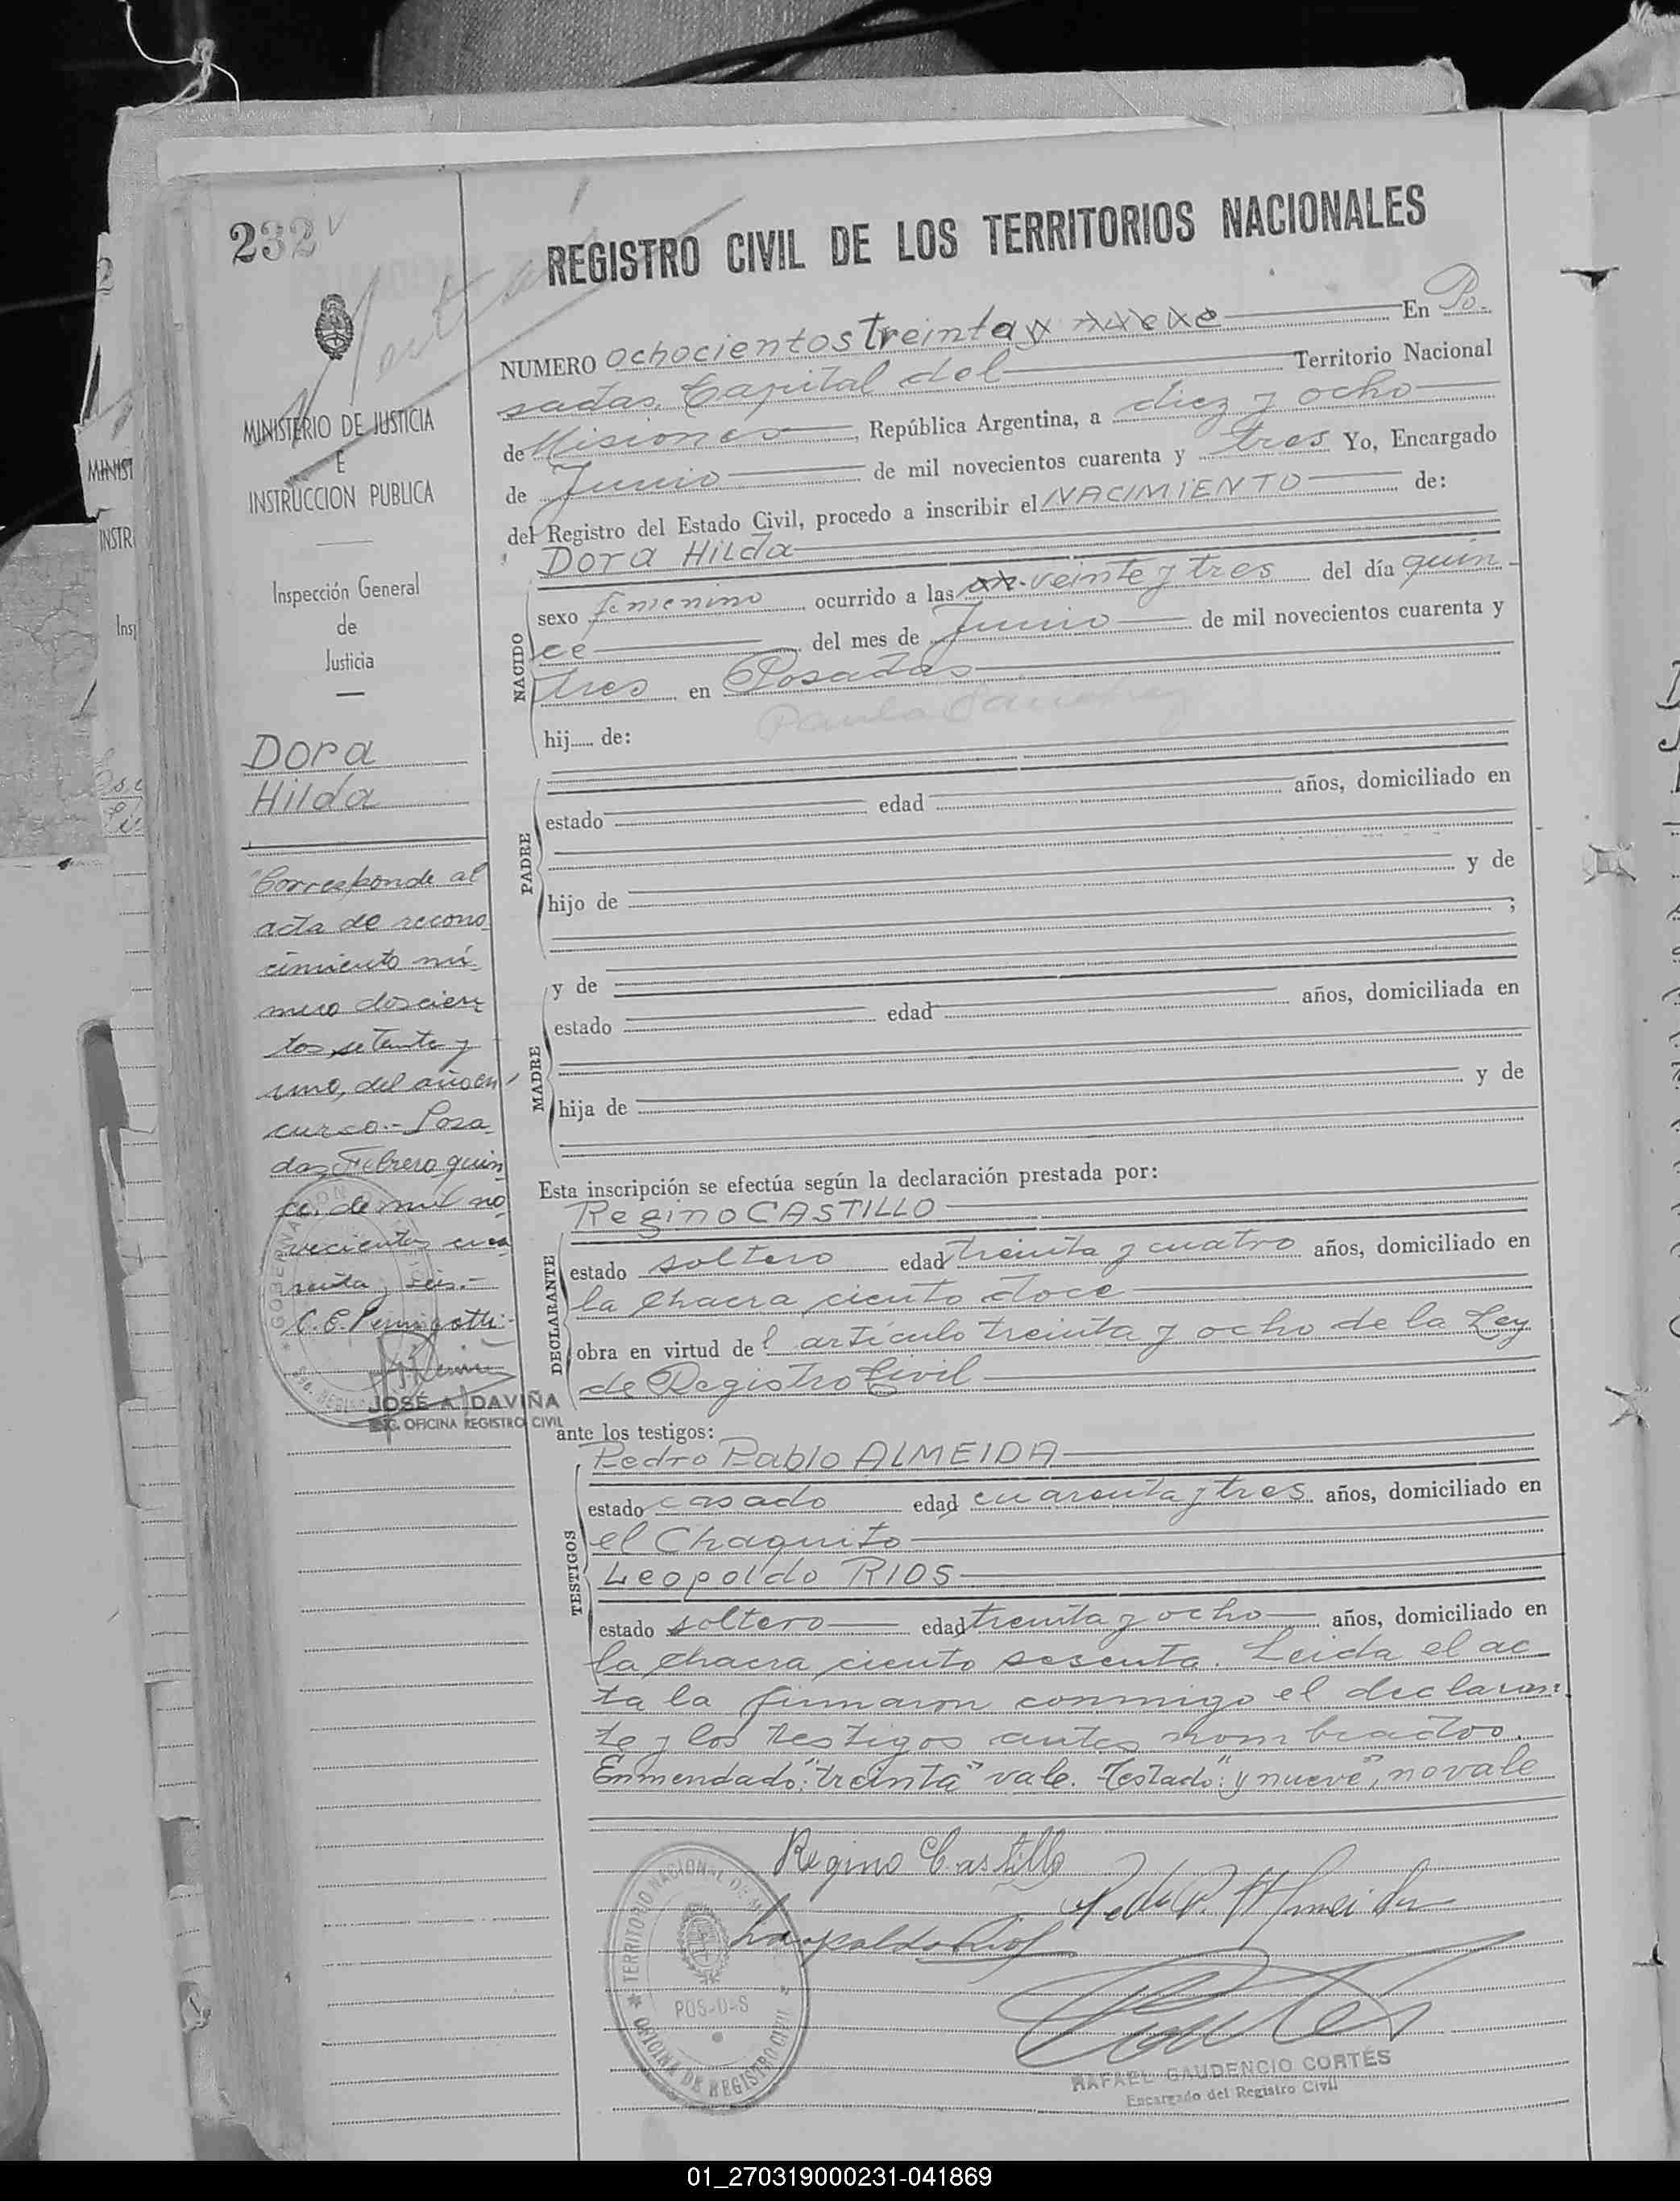 232
REGISTRO CIVIL DE LOS TERRITORIOS NACIONALES
NUMERO ochocientos treinta y nueve En Po-
sadas, Capital del Territorio Nacional
de Misiones, República Argentina, a diez y ocho
de Junio de mil novecientos cuarenta y tres Yo, Encargado
del Registro del Estado Civil, procedo a inscribir el NACIMIENTO de:
Dora Hilda
NACIDO
sexo femenino ocurrido a las veinte y tres del día quin-
ce del mes de Junio de mil novecientos cuarenta y
tres en Posadas
hij..... de:
PADRE
estado edad años, domiciliado en
hijo de y de
;
MADRE
y de
estado edad años, domiciliada en
hija de y de
Esta inscripción se efectúa según la declaración prestada por:
DECLARANTE
Regino CASTILLO
estado soltero edad treinta y cuatro años, domiciliado en
la chacra ciento doce
obra en virtud del artículo treinta y ocho de la Ley
de Registro Civil
ante los testigos:
TESTIGOS
Pedro Pablo ALMEIDA
estado casado edad cuarenta y tres años, domiciliado en
el Chaquito
Leopoldo RIOS
estado soltero edad treinta y ocho años, domiciliado en
la chacra ciento sesenta. Leida el ac
ta la firmaron conmigo el declaran-
te y los testigos antes nombrados.
Enmendado: "treinta" vale. Testado: "y nueve", no vale
Regino Castillo
Pedro P. Almeida
Leopoldo Rios
TERRITORIO NACIONAL DE
POS-D-S
OFICINA DE REGISTRO CIVIL
RAFAEL GAUDENCIO CORTÉS
Encargado del Registro Civil
MINISTERIO DE JUSTICIA
E
INSTRUCCION PUBLICA
Inspección General
de
Justicia
Dora
Hilda
Corresponde al
acta de recono
cimiento nú-
mero doscien
tos setenta y
uno, del año en
curso.- Posa
das, Febrero quin
ce, de mil no
vecientos cua
renta y seis.-
JOSÉ A. DAVIÑA
OFICINA REGISTRO CIVIL
MINIST
INSTR
Insp
01_270319000231-041869